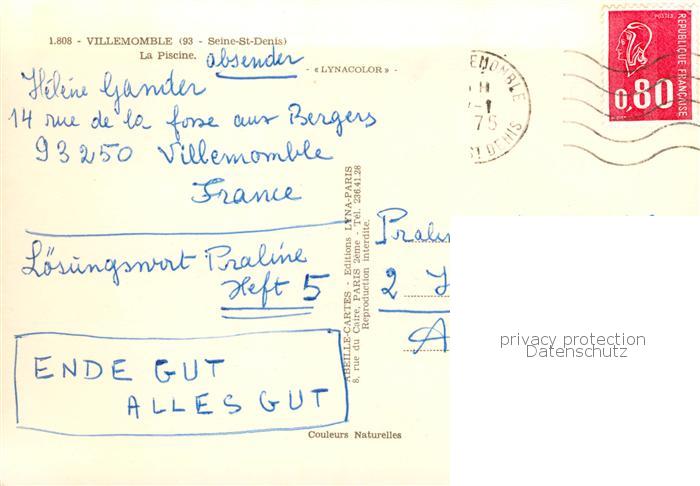 1.808 - VILLEMOMBLE (93 - Seine-St-Denis)
La Piscine.
absender
- « LYNACOLOR » -
Hélène Gander
14 rue de la fosse aux Bergers
93250 Villemomble
France
Lösungswort Praline
Heft 5
ENDE GUT
ALLES GUT
ABEILLE-CARTES - Editions LYNA-PARIS
8, rue du Caire, PARIS 2ème - Tél. 236.41.28
Reproduction interdite.
Couleurs Naturelles
75
ST DENIS
POSTES
REPUBLIQUE FRANÇAISE
0,80
Pralin
2
A
privacy protection
Datenschutz